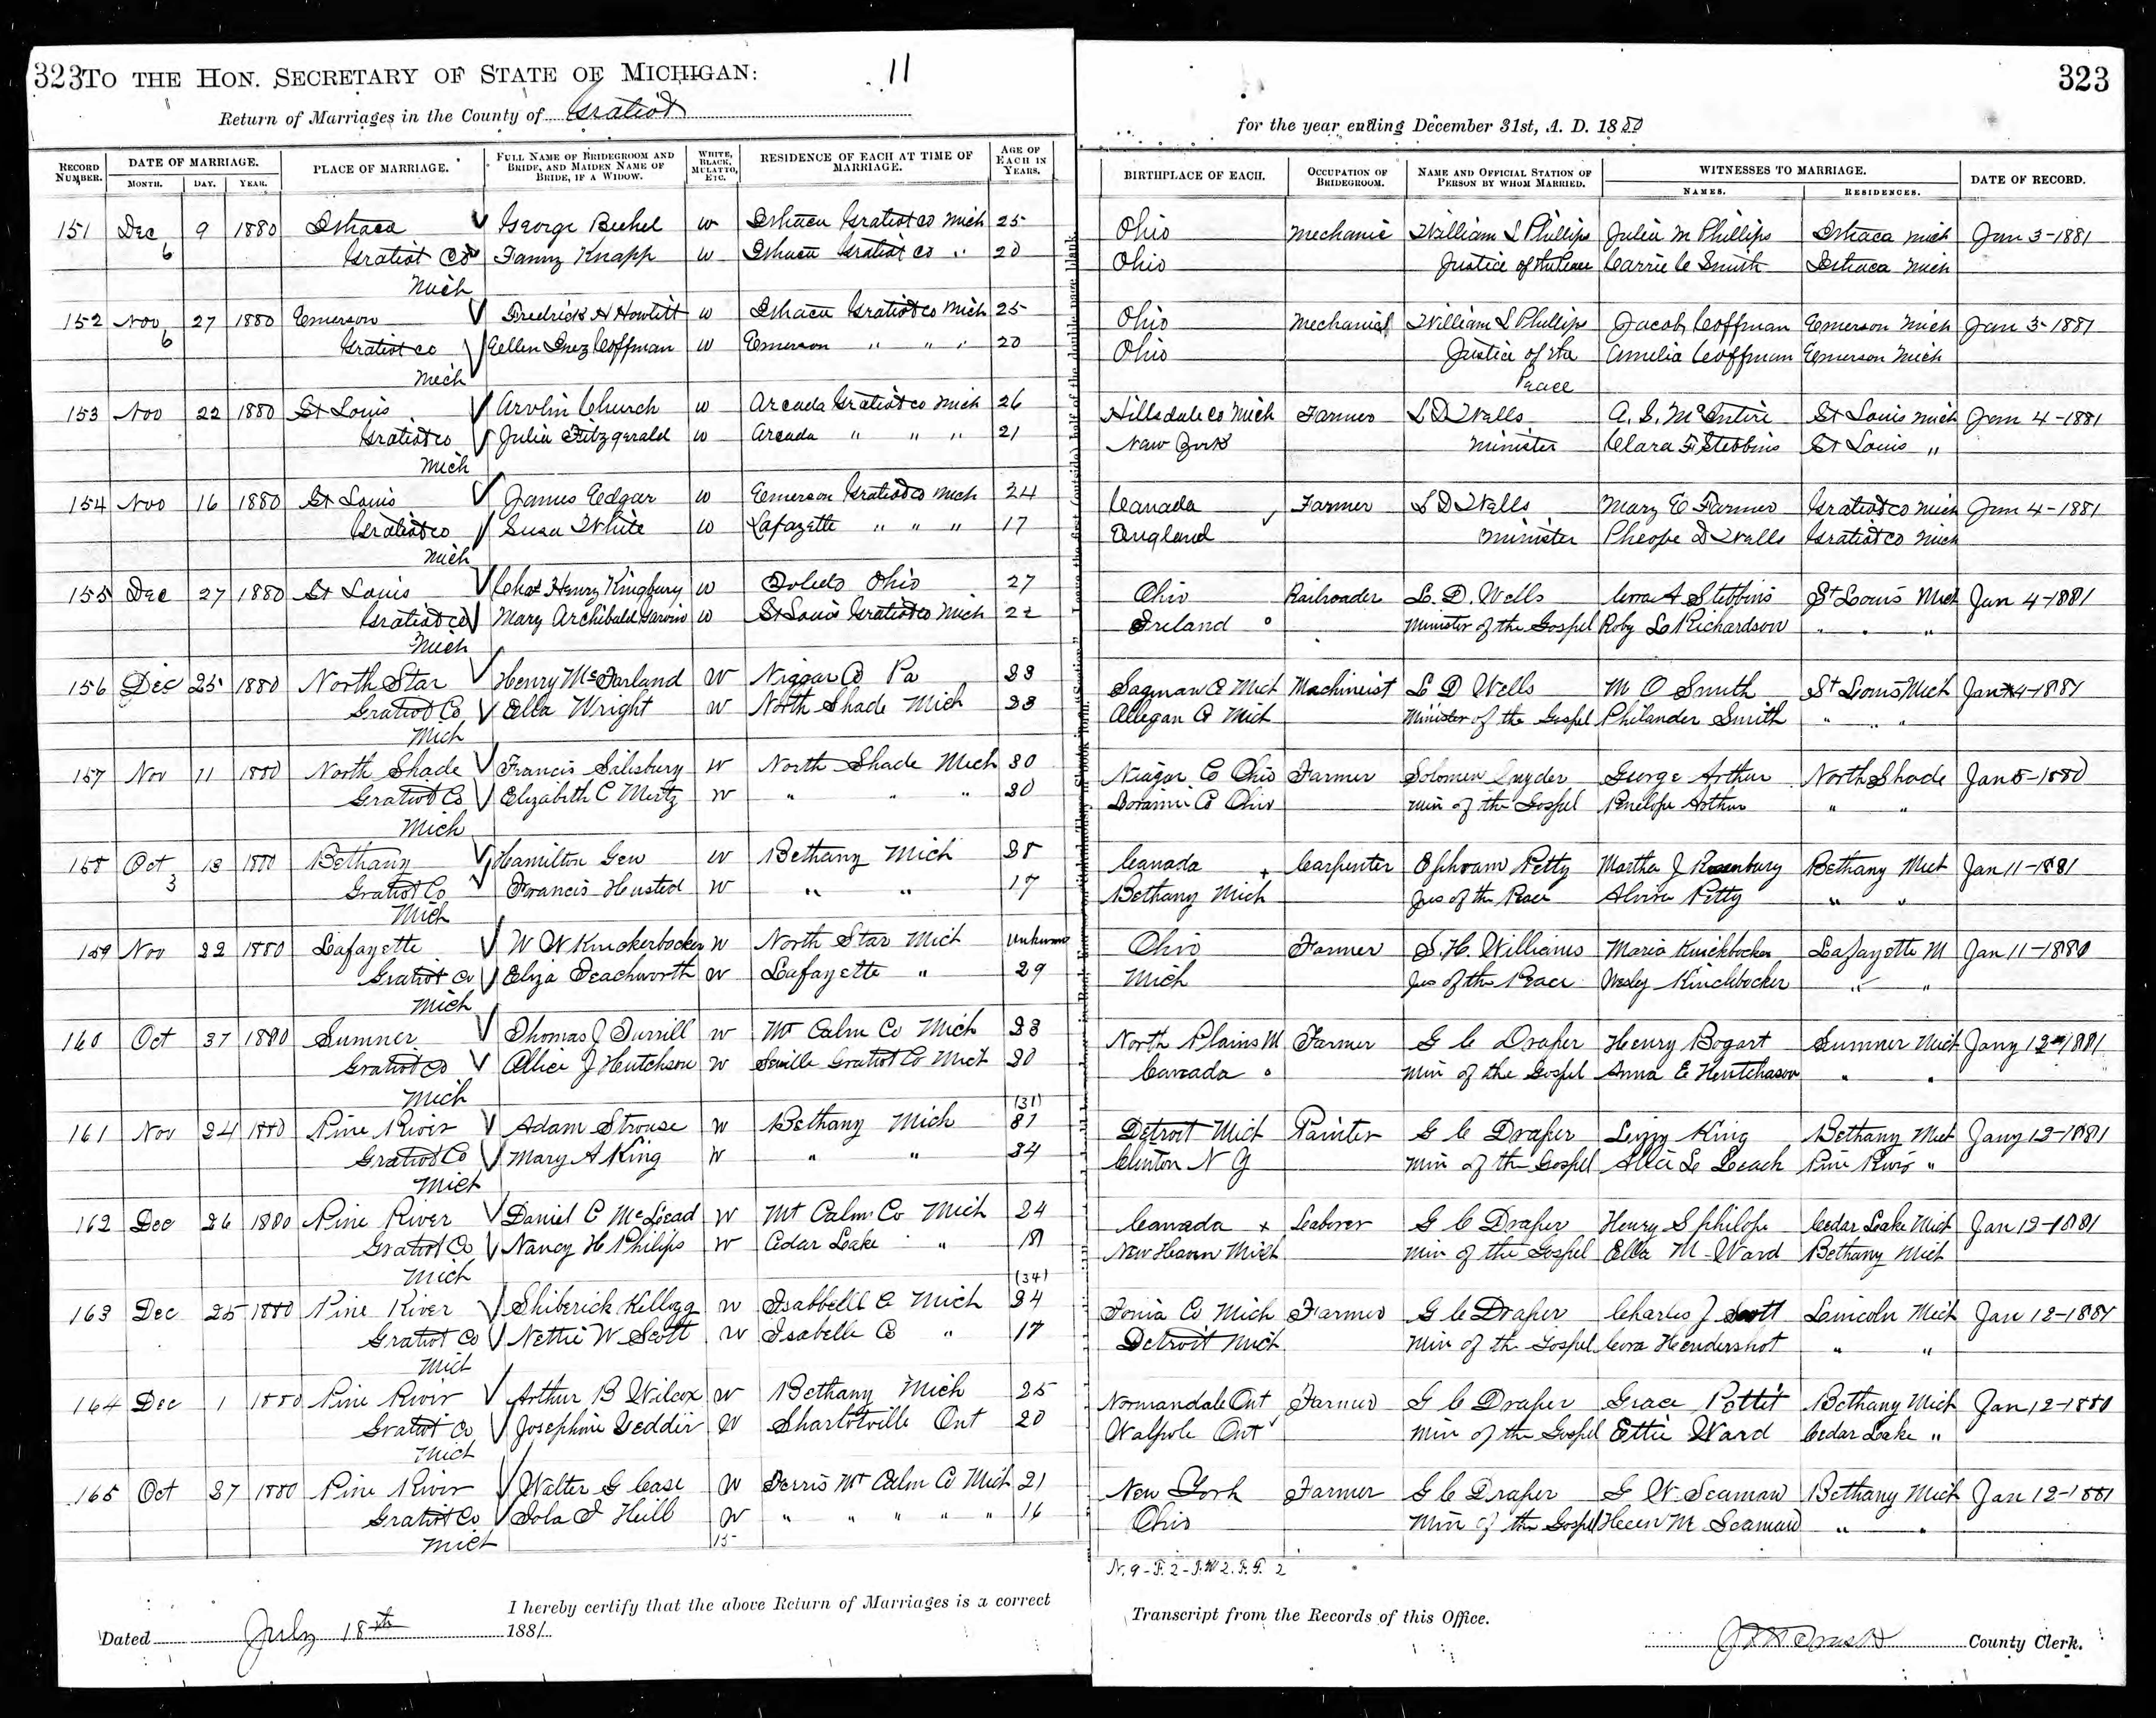 323 TO THE HON. SECRETARY OF STATE OF MICHIGAN: 11
Return of Marriages in the County of Gratiot
RECORD NUMBER. DATE OF MARRIAGE. MONTH. DAY. YEAR. PLACE OF MARRIAGE. FULL NAME OF BRIDEGROOM AND BRIDE, AND MAIDEN NAME OF BRIDE, IF A WIDOW. WHITE, BLACK, MULATTO, ETC. RESIDENCE OF EACH AT TIME OF MARRIAGE. AGE OF EACH IN YEARS.
151 Dec 9 1880 Ithaca George Beehel W Ithaca Gratiot co Mich 25
6 Gratiot Co Fanny Knapp W Ithaca Gratiot co " 20
Mich
152 Nov 27 1880 Emerson Fredrick H Howlitt W Ithaca Gratiot co Mich 25
6 Gratiot co Eellen Inez Coffman W Emerson " " " 20
Mich
153 Nov 22 1880 St Louis Arvlin Church W Arcada Gratiot co Mich 26
Gratiot co Julia Fitzgerald W Arcada " " " 21
Mich
154 Nov 16 1880 St Louis James Edgar W Emerson Gratiot co Mich 24
Gratiot co Susa White W Lafayette " " " 17
Mich
155 Dec 27 1880 St Louis Chas Henry Kingbury W Toledo Ohio 27
Gratiot co Mary Archibald Garvin W St Louis Gratiot co Mich 22
Mich
156 Dec 25 1880 North Star Henry McFarland W Niggar Co Pa 23
Gratiot Co Ella Wright W North Shade Mich 23
Mich
157 Nov 11 1880 North Shade Francis Salisbury W North Shade Mich 30
Gratiot Co Elizabeth C Mertz W " " " 20
Mich
158 Oct 13 1880 Bethany Hamilton Gew W Bethany Mich 28
3 Gratiot Co Francis Husted W " " 17
Mich
159 Nov 22 1880 Lafayette W W Knickerbocker W North Star Mich unknown
Gratiot Co Eliza Teachworth W Lafayette " 29
Mich
160 Oct 27 1880 Sumner Thomas J Turrill W Mt Calm Co Mich 23
Gratiot Co Allice J Hutchson W Seville Gratiot Co Mich 20
Mich (31)
161 Nov 24 1880 Pine River Adam Strouse W Bethany Mich 31
Gratiot Co Mary A King W " " 24
Mich
162 Dec 26 1880 Pine River Daniel C McLead W Mt Calm Co Mich 24
Gratiot Co Nancy H Philips W Cedar Lake " 18
Mich (34)
163 Dec 25 1880 Pine River Shiberick Kellogg W Isabbelle Co Mich 34
Gratiot Co Nettie W Scott W Isabella Co " 17
Mich
164 Dec 1 1880 Pine River Arthur B Wilcox W Bethany Mich 25
Gratiot Co Josephine Vedder W Sharlotville Ont 20
Mich
165 Oct 27 1880 Pine River Walter G Case W Ferris Mt Calm Co Mich 21
Gratiot Co Iola I Hill W " " " " " 16
Mich 15
I hereby certify that the above Return of Marriages is a correct
Dated July 18th 1881.
323
for the year ending December 31st, A. D. 1880
BIRTHPLACE OF EACH. OCCUPATION OF BRIDEGROOM. NAME AND OFFICIAL STATION OF PERSON BY WHOM MARRIED. WITNESSES TO MARRIAGE. NAMES. RESIDENCES. DATE OF RECORD.
Ohio Mechanic William L Phillips Julia M Phillips Ithaca Mich Jan 3-1881
Ohio Justice of the Peace Carrie C Smith Ithaca Mich
Ohio Mechanial William L Phillips Jacob Coffman Emerson Mich Jan 3-1881
Ohio Justice of the Amelia Coffman Emerson Mich
Peace
Hillsdale co Mich Farmer L D Wells A. S. McEntire St Louis Mich Jan 4-1881
New York Minister Clara F Stebbins St Louis "
Canada Farmer L D Wells Mary E Farmer Gratiot co Mich Jan 4-1881
England Minister Pheope D Wells Gratiot co Mich
Ohio Railroader L. D. Wells Cora A Stebbins St Louis Mich Jan 4-1881
Ireland Minister of the Gospel Roby L Richardson " " "
Saginaw Co Mich Machineist L D Wells M O Smith St Louis Mich Jan 4-1881
Allegan Co Mich Minister of the Gospel Philander Smith " " "
Niagar Co Ohio Farmer Solomen Snyder George Arthur North Shade Jan 8-1880
Co Ohio Min of the Gospel Penelope Arthur " "
Canada Carpenter Ephraim Petty Martha J Rosenbury Bethany Mich Jan 11-1881
Bethany Mich Jus of the Peace Alvira Petty " "
Ohio Farmer S. H. Williams Maria Knickbocker Lafayette M Jan 11-1880
Mich Jus of the Peace Wesley Kinchbocker " "
North Plains M Farmer G C Draper Henry Bogart Sumner Mich Jany 12 1881
Canada Min of the Gospel Anna E Hutchason " "
Detroit Mich Painter G C Draper Lizzy King Bethany Mich Jany 12-1881
Clinton N Y Min of the Gospel Allice L Leach Pine River "
Canada Laborer G C Draper Henry S philops Cedar Lake Mich Jan 12-1881
New Heavn Mich Min of the Gospel Ella M Ward Bethany Mich
Ionia Co Mich Farmer G C Draper Charles J Scott Lincoln Mich Jan 12-1881
Detroit Mich Min of the Gospel Cora Hendershot " "
Normandale Ont Farmer G C Draper Grace Pettit Bethany Mich Jan 12-1880
Walpole Ont Min of the Gospel Ettie Ward Cedar Lake "
New York Farmer G C Draper G W. Seaman Bethany Mich Jan 12-1881
Ohio Min of the Gospel Helen M Seaman " "
N. 9 - F. 2 - F. W 2. F. F. 2
Transcript from the Records of this Office.
County Clerk.